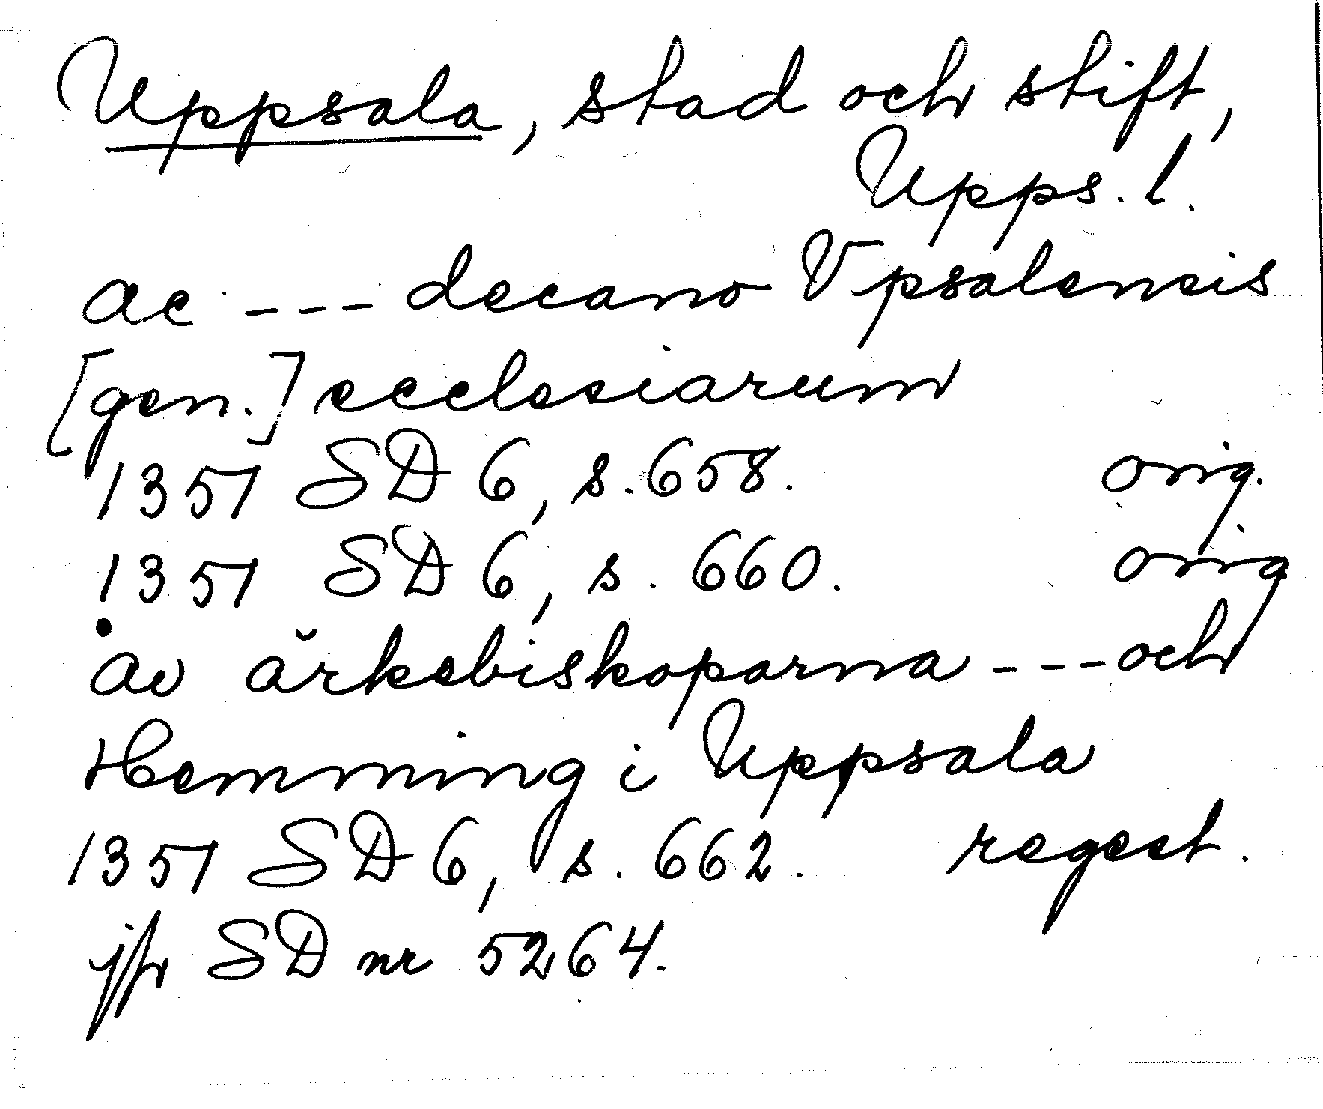 Uppsala, stad och stift,
Upps. l.
ac --- decano Vpsalensis
[gen.] ecclesiarum
1357 SD 6, s. 658. orig.
1357 SD 6, s. 660. orig
av ärkebiskoparna --- och
Hemming i Uppsala
1357 SD 6, s. 662. regest.
jfr SD nr 5264.